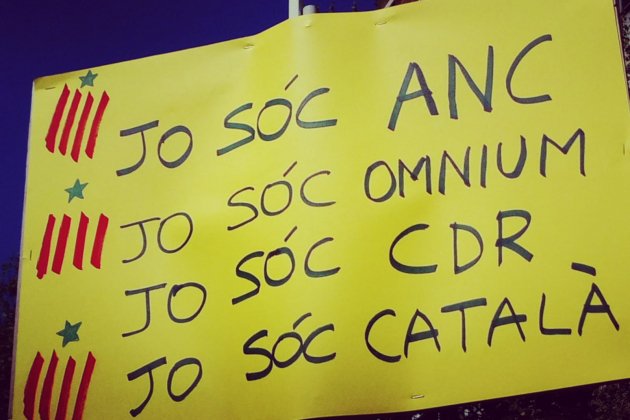 JO SÓC ANC
JO SÓC OMNIUM
JO SÓC CDR
JO SÓC CATALÀ